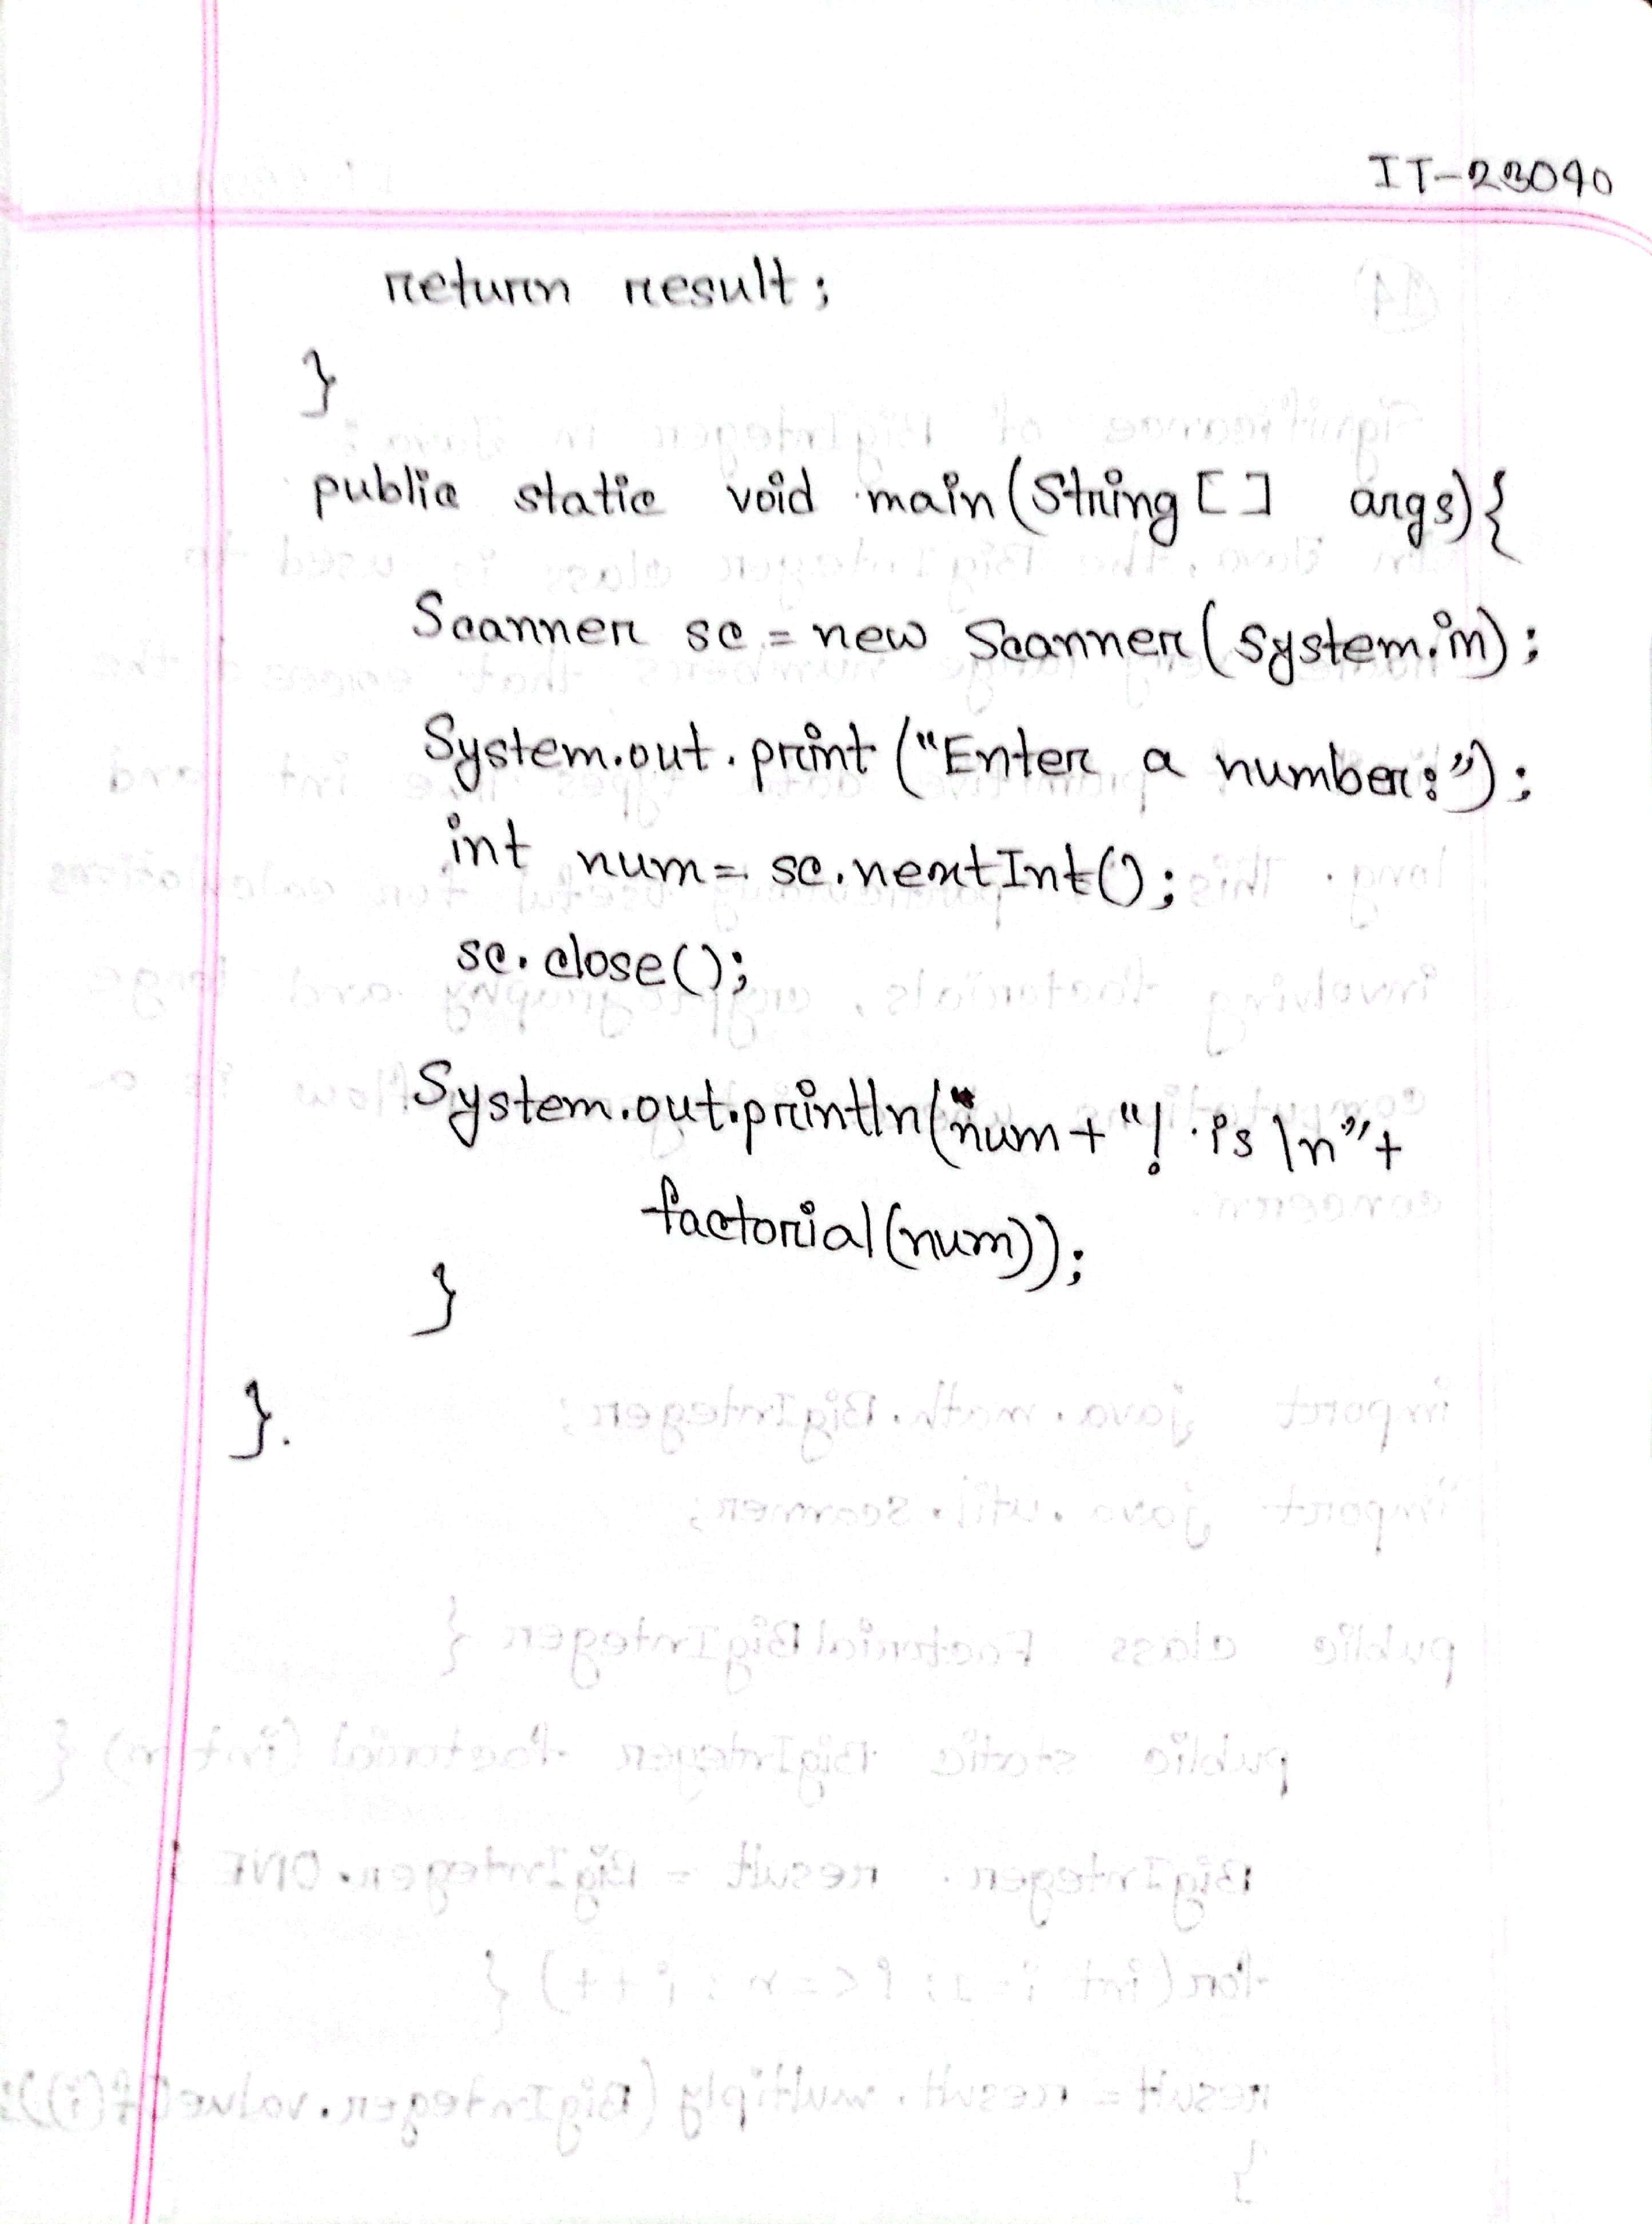 IT-23090
return result;
}
public static void main(String [] args){
Scanner sc = new Scanner(System.in);
System.out.print("Enter a number:");
int num = sc.nextInt();
sc.close();
System.out.println(num + "! is \n" +
factorial(num));
}
}.